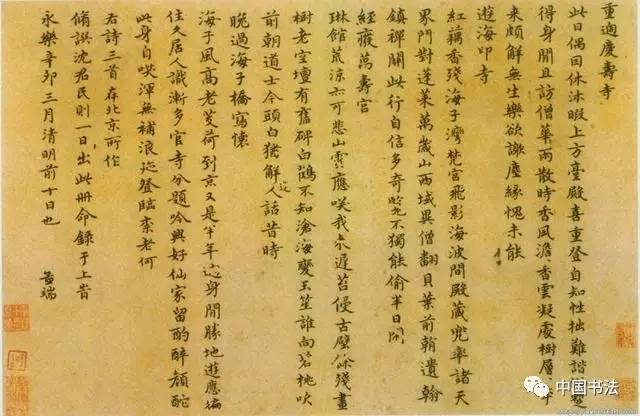 重過慶壽寺
此日偶因休沐暇上方臺殿喜重登自知性拙難諧
得身閒且訪僧華雨散時香風澹香雲凝處樹層
來頗解無生樂欲謝塵緣愧未能
遊海印寺
紅藕香殘海子灣梵宮飛影海波間殿藏兜率諸天
界門對蓬萊萬歲山西域異僧翻貝葉前朝遺翰
鎮禪關此行自信多奇不獨能偷半日閒
經廢萬壽宮
琳館荒涼亦可悲山靈應咲我來遲苔侵古壁餘殘畫
樹老空壇有舊碑白鶴不知滄海變玉笙誰向碧桃吹
前朝道士今頭白猶解人話昔時
晚過海子橋寫懷
海子風高老芰荷到京又是半年過身閒勝地遊應遍
住久居人識漸多官寺分題吟興好仙家留酌醉顏酡
此身自咲渾無補浪跡登臨柰老何
右詩三首在北京所作
脩撰沈君民則一日出此冊命錄于上時
永樂辛卯三月清明前十日也
孟端
中国书法